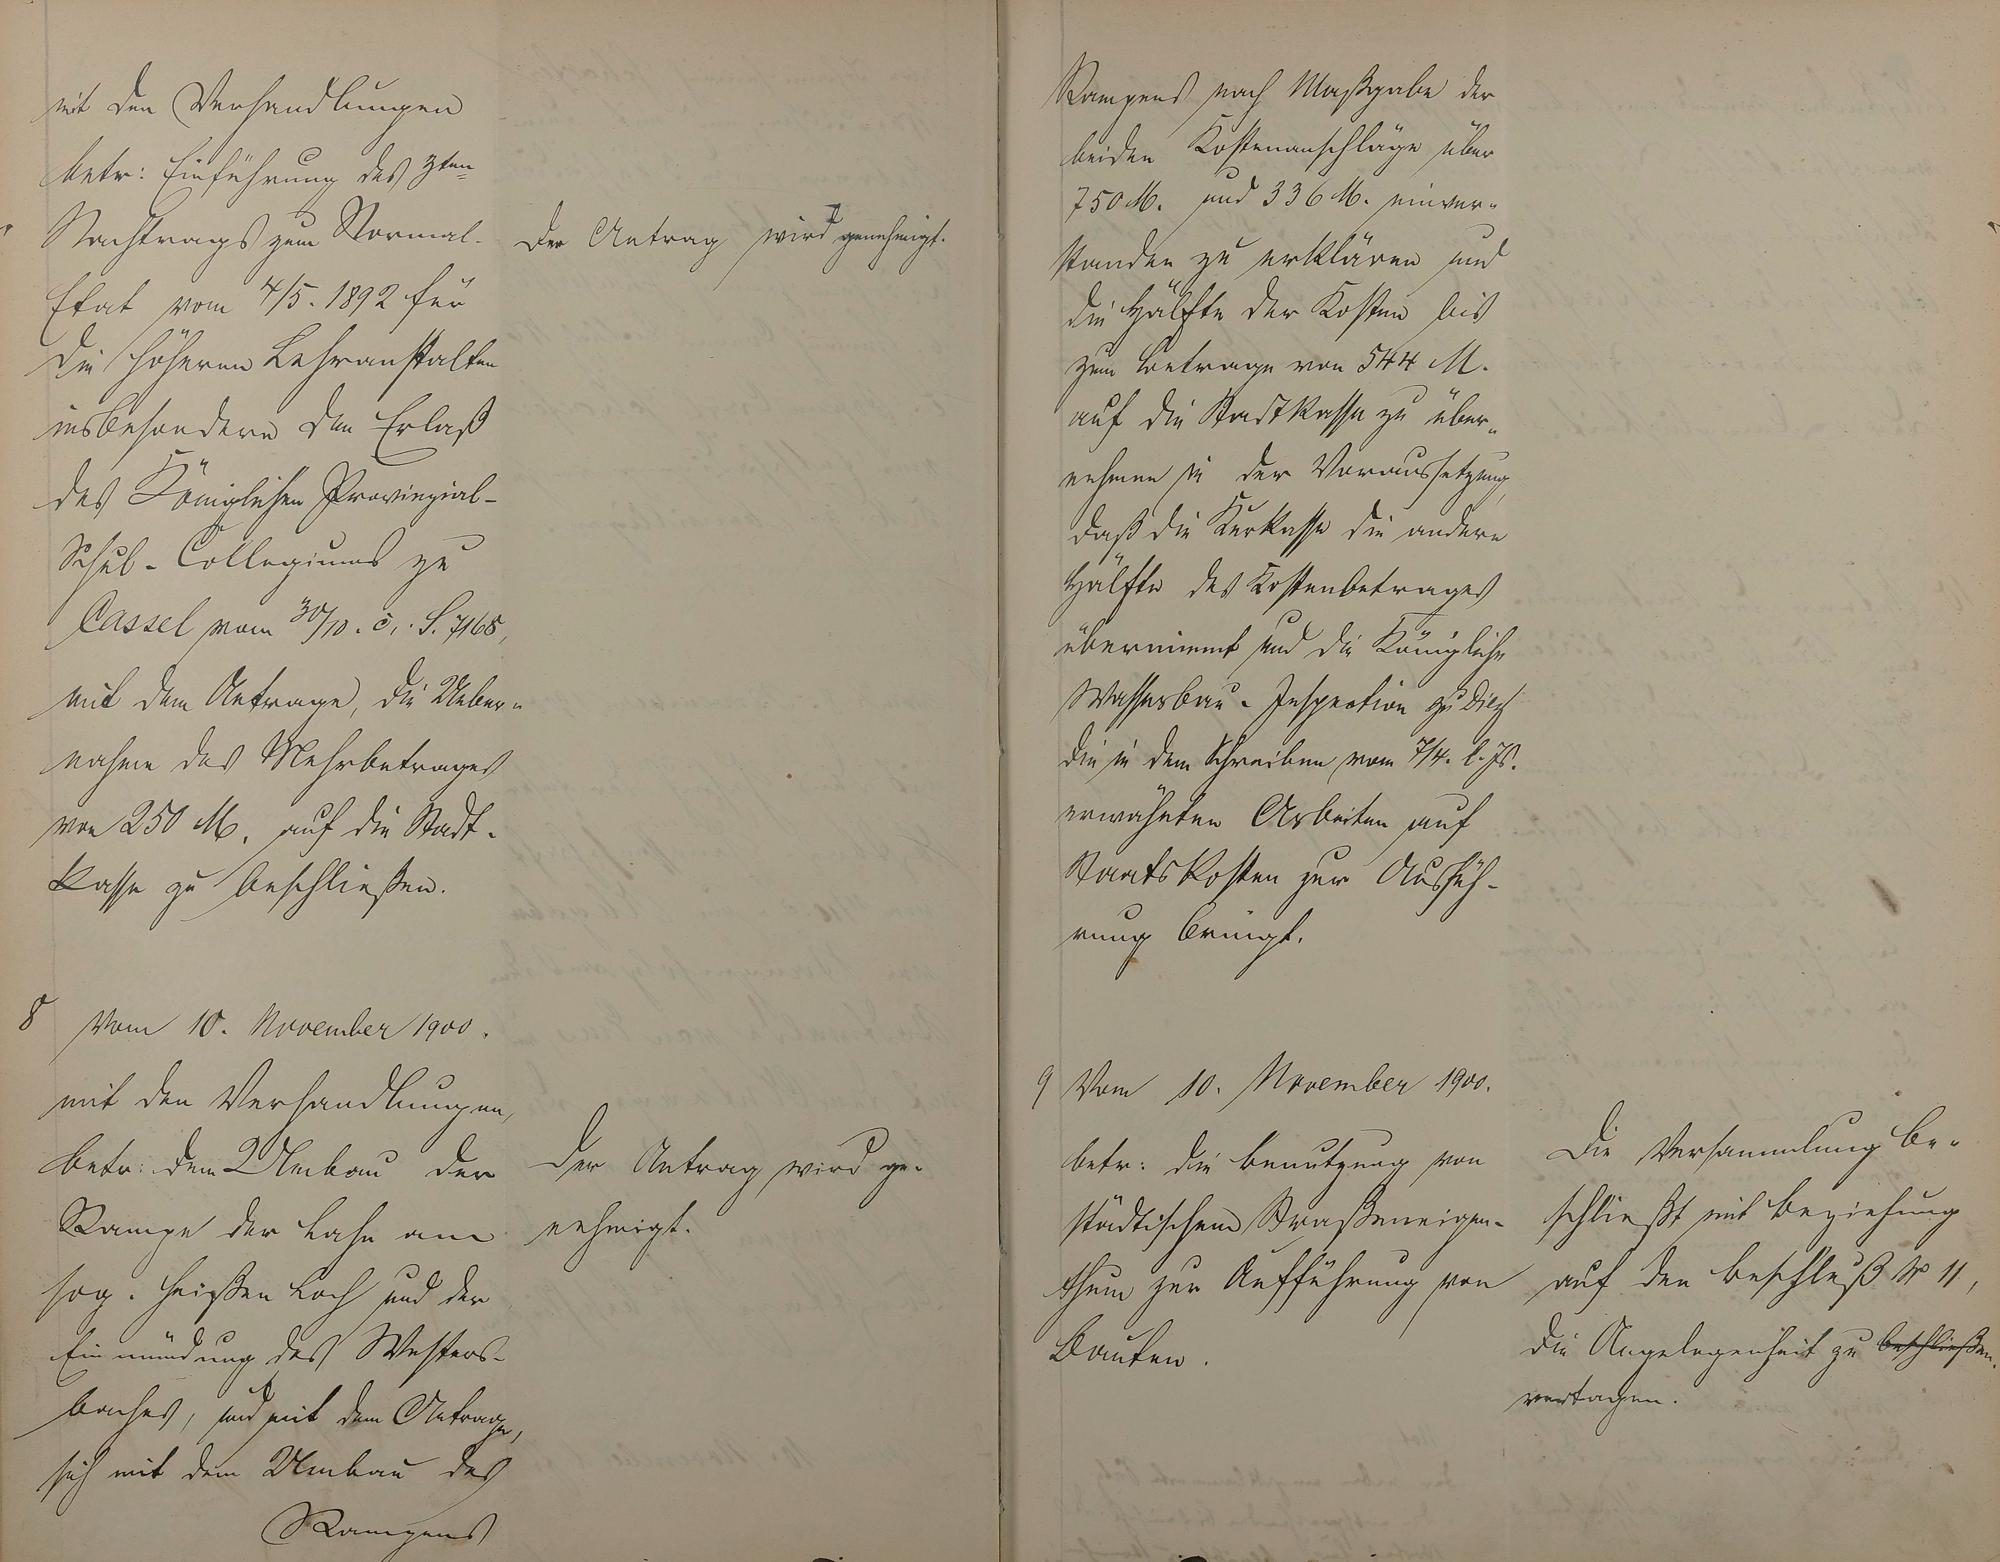 mit den Verhandlungen
betr: Einführung des 3ten
Nachtrags zum Normal-
Etat vom 4/5. 1892 für
die höheren Lehranstalten
insbesondere den Erlaß
des Königlichen Provinzial-
Schul-Collegiums zu
Cassel vom 30/10. c. S. 7165,
mit dem Antrage, die Ueber-
nahme des Mehrbetrages
von 250 M. auf die Stadt-
kasse zu beschließen.
Der Antrag wird genehmigt.
8 Vom 10. November 1900.
mit den Verhandlungen,
betr: den Umbau der
Rampe der Lahn am
sog. heißen Loch und der
Einmündung des Westers-
baches, und mit dem Antrage,
sich mit dem Umbau des
Rampens
Der Antrag wird ge-
nehmigt.
Rampens nach Maßgabe der
beiden Kostenanschläge über
750 M. und 336 M. einver-
standen zu erklären und
die Hälfte der Kosten bis
zum Betrage von 544 M.
auf die Stadtkasse zu über-
nehmen in der Voraussetzung,
daß die Kurkasse die andere
Hälfte des Kostenbetrages
übernimmt und die Königliche
Wasserbau-Inspection zu Diez
die in dem Schreiben vom 7/4. l. Js.
erwähnten Arbeiten auf
Staatskosten zur Ausfüh-
rung bringt.
9 Vom 10. November 1900.
betr: die Benutzung von
städtischem Straßeneigen-
thum zur Aufführung von
Bauten.
Die Versammlung be-
schließt mit Beziehung
auf den Beschluß No 11,
die Angelegenheit zu beschließen.
vertagen.